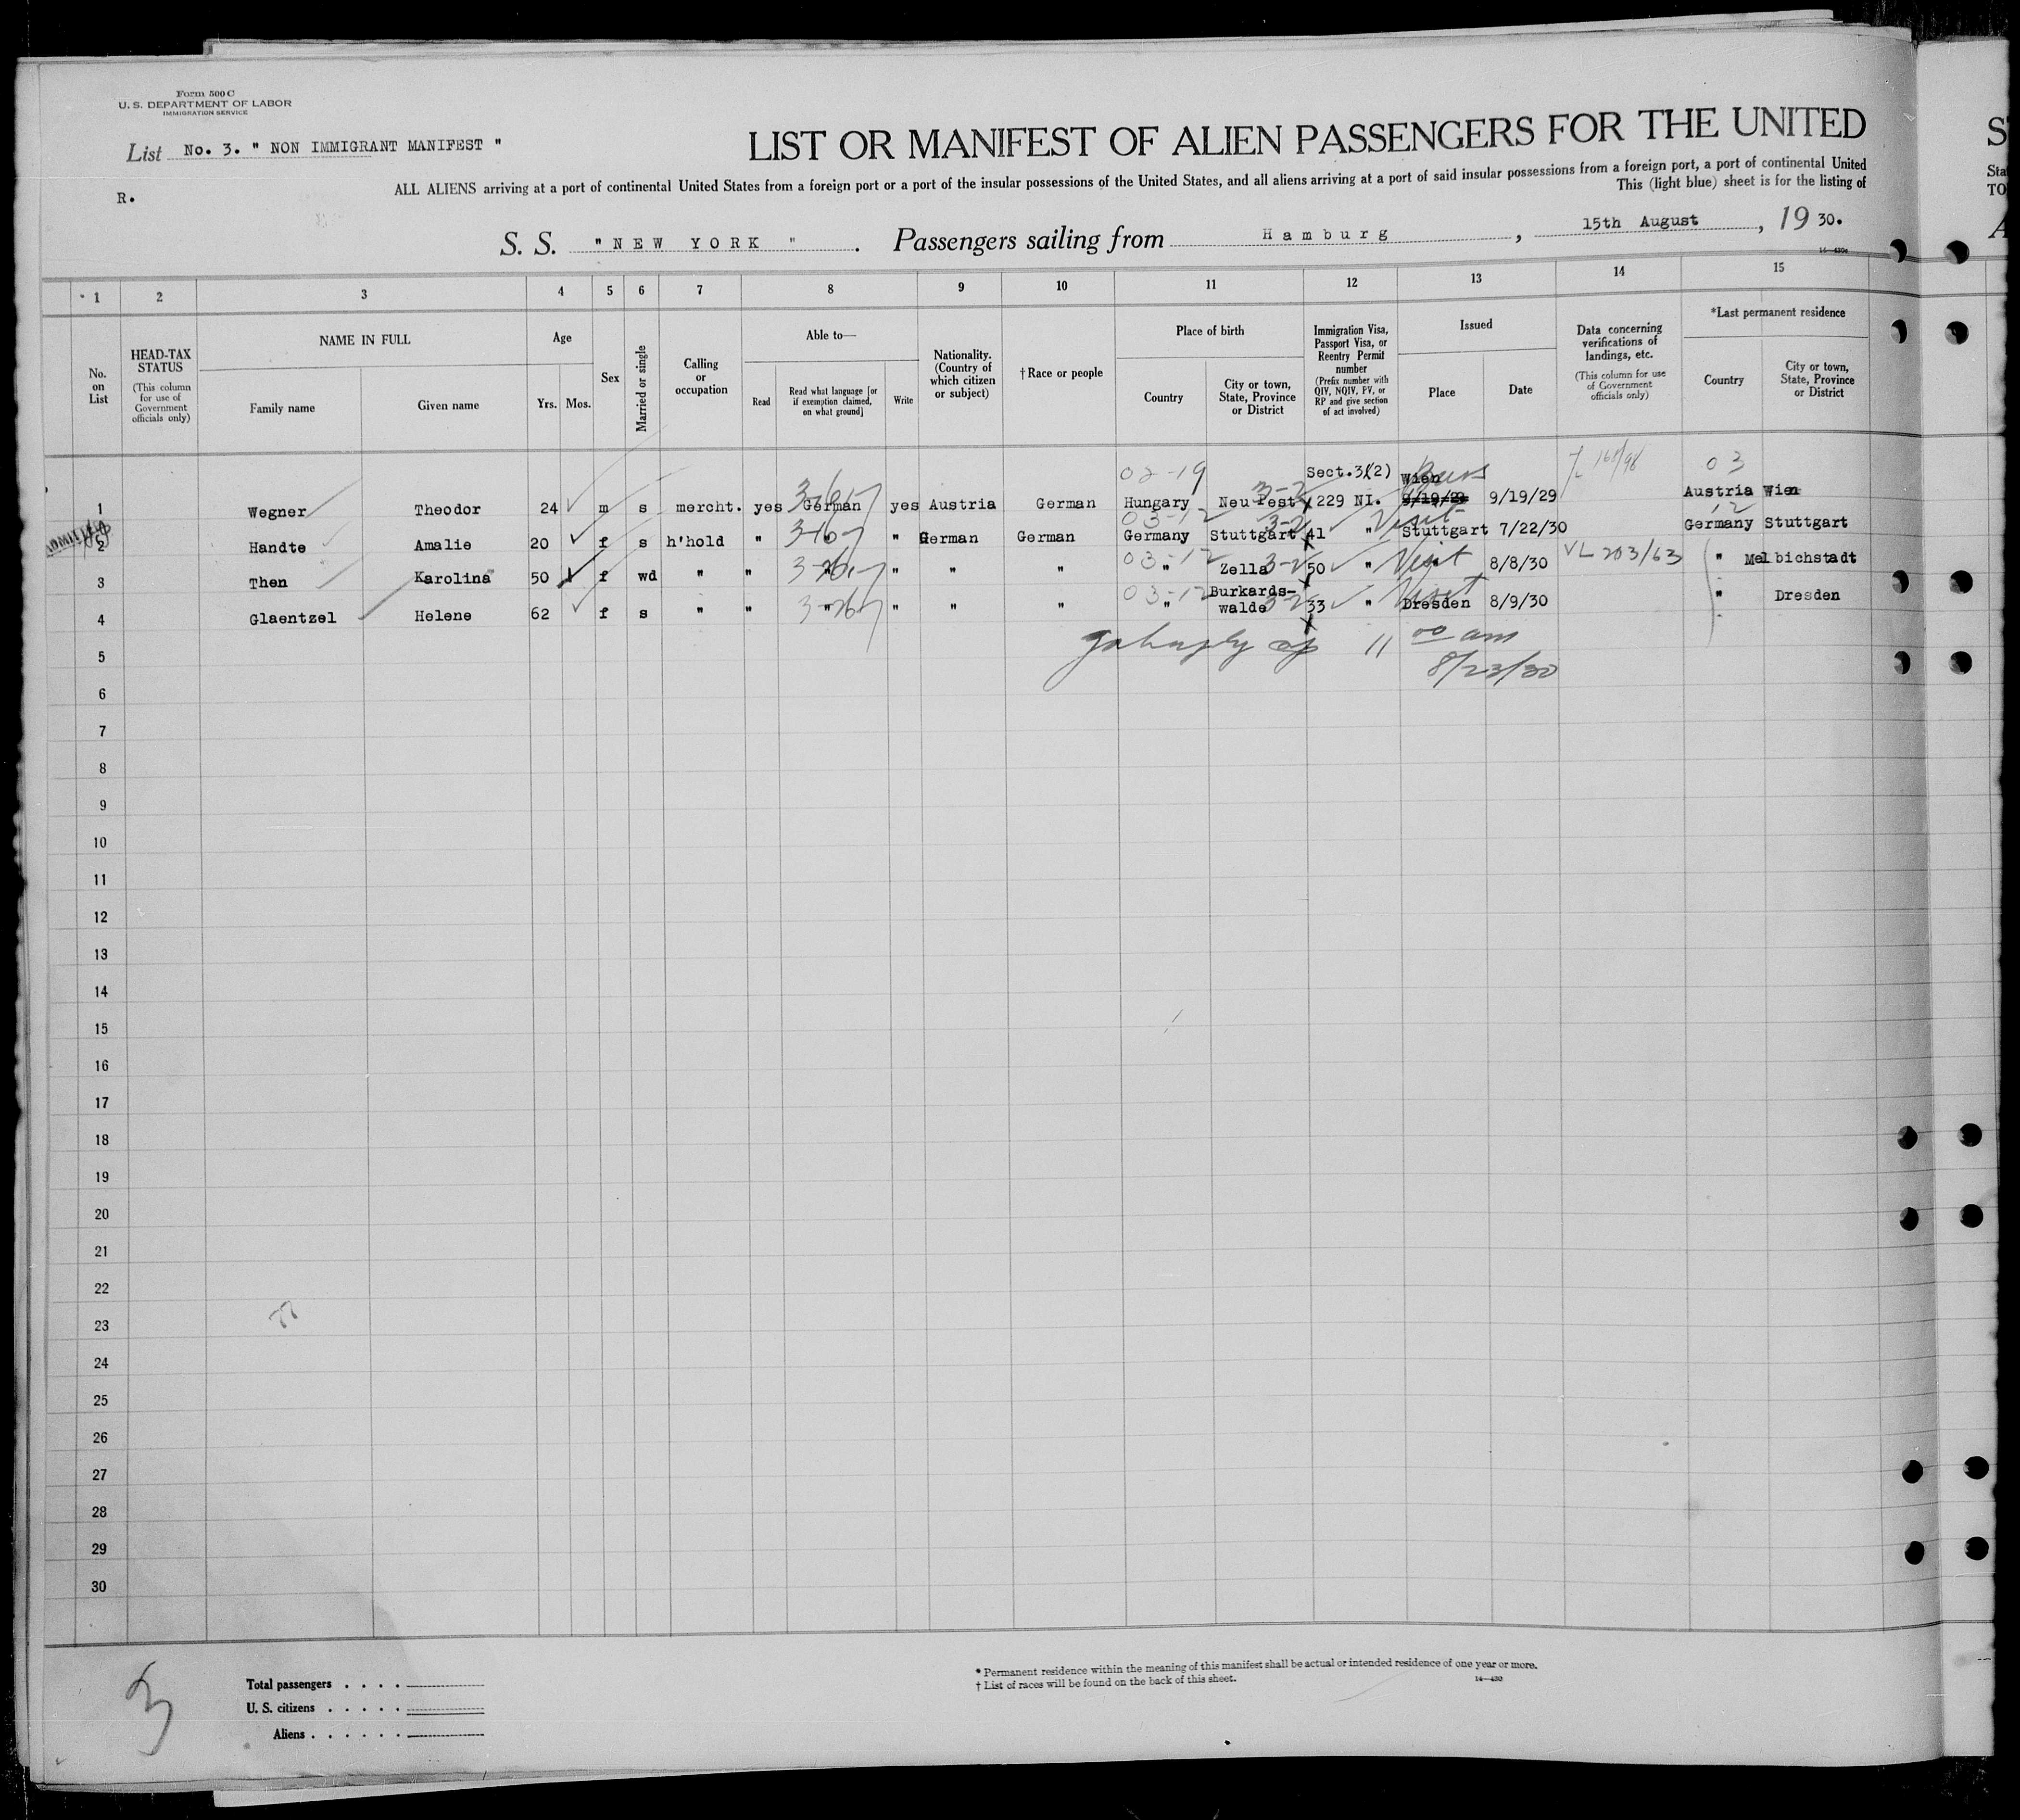 Form 500 C
U. S. DEPARTMENT OF LABOR
IMMIGRATION SERVICE
List No. 3. " NON IMMIGRANT MANIFEST "
R.
LIST OR MANIFEST OF ALIEN PASSENGERS FOR THE UNITED
ALL ALIENS arriving at a port of continental United States from a foreign port or a port of the insular possessions of the United States, and all aliens arriving at a port of said insular possessions from a foreign port, a port of continental United
This (light blue) sheet is for the listing of
S. S. " N E W Y O R K " . Passengers sailing from H a m b u r g , 15th August , 19 30.
1 2 3 4 5 6 7 8 9 10 11 12 13 14 15
No. on List
HEAD-TAX STATUS
(This column for use of Government officials only)
NAME IN FULL
Family name Given name
Age
Yrs. Mos.
Sex
Married or single
Calling or occupation
Able to—
Read
Read what language [or if exemption claimed, on what ground]
Write
Nationality. (Country of which citizen or subject)
† Race or people
Place of birth
Country
City or town, State, Province or District
Immigration Visa, Passport Visa, or Reentry Permit number
(Prefix number with QIV, NQIV, PV, or RP and give section of act involved)
Issued
Place Date
Data concerning verifications of landings, etc.
(This column for use of Government officials only)
*Last permanent residence
Country
City or town, State, Province or District
02-19 Sect.3(2) 168/98 03
1 Wegner Theodor 24 m s mercht. yes German yes Austria German Hungary Neu Pest 229 NI. Wien 9/19/29 9/19/29 Austria Wien
03-12 3-2 Visit 12
2 Handte Amalie 20 f s h'hold " " " German German Germany Stuttgart 41 " Stuttgart 7/22/30 Germany Stuttgart
03-12 3-2 Visit VL 203/63
3 Then Karolina 50 f wd " " " " " " " Zella 50 " " 8/8/30 " Melbichstadt
03-12 3-2 Visit
4 Glaentzel Helene 62 f s " " " " " " " Burkards-walde 33 " Dresden 8/9/30 " Dresden
5 11 00 am
8/23/30
6
7
8
9
10
11
12
13
14
15
16
17
18
19
20
21
22
23
24
25
26
27
28
29
30
3
Total passengers . . . .
U. S. citizens . . . . .
Aliens . . . . . .
* Permanent residence within the meaning of this manifest shall be actual or intended residence of one year or more.
† List of races will be found on the back of this sheet.
14—430